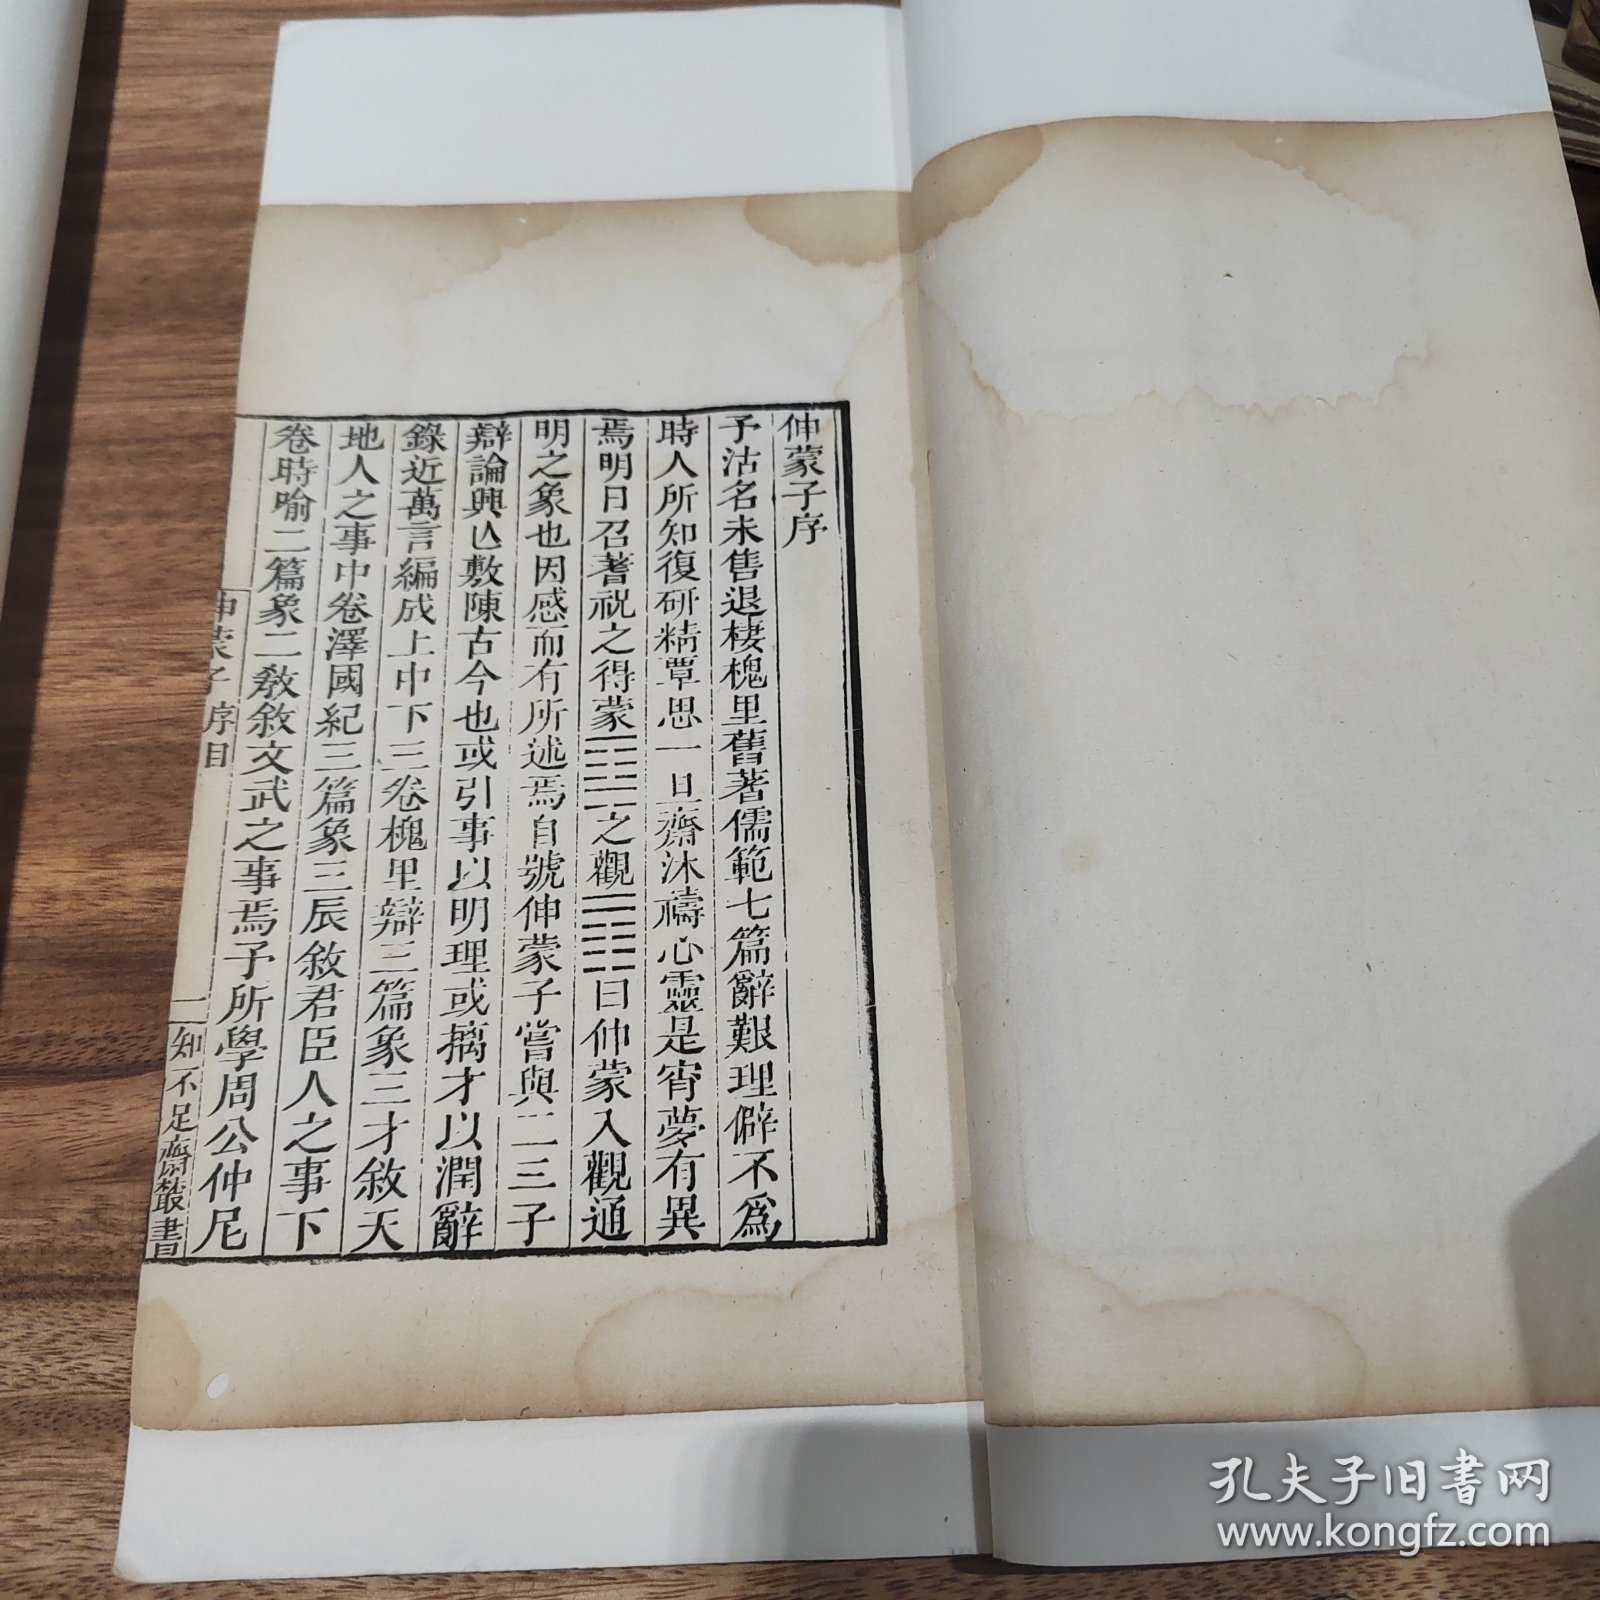 伸蒙子序
予沽名未售退棲槐里舊著儒範七篇辭艱理僻不爲
時人所知復研精覃思一旦齋沐禱心靈是宵夢有異
焉明日召蓍祝之得蒙䷃之觀䷓曰伸蒙入觀通
明之象也因感而有所述焉自號伸蒙子嘗與二三子
辯論興亾敷陳古今也或引事以明理或摛才以潤辭
錄近萬言編成上中下三卷槐里辯三篇象三才敘天
地人之事中卷澤國紀三篇象三辰敘君臣人之事下
卷時喻二篇象二教敘文武之事焉予所學周公仲尼
伸蒙子序目
一
知不足齋叢書
孔夫子旧书网
www.kongfz.com